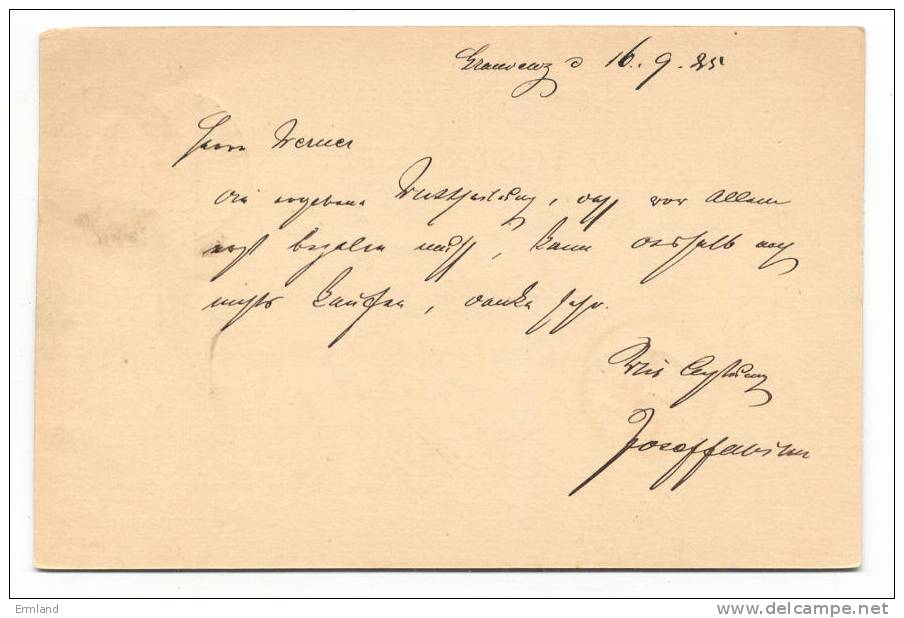 Graudenz d 16. 9. 85
Herrn Werner
die ergebene Mittheilung, daß vor Allem
erst bezahlen muß, kann deshalb noch
nichts kaufen, danke sehr.
Mit Achtung
Josef
Ermland
www.delcampe.net